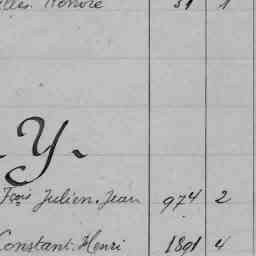 Honoré 31 1
- Y -
Fçois Julien. Jean 974 2
Constant. Henri 1891 4